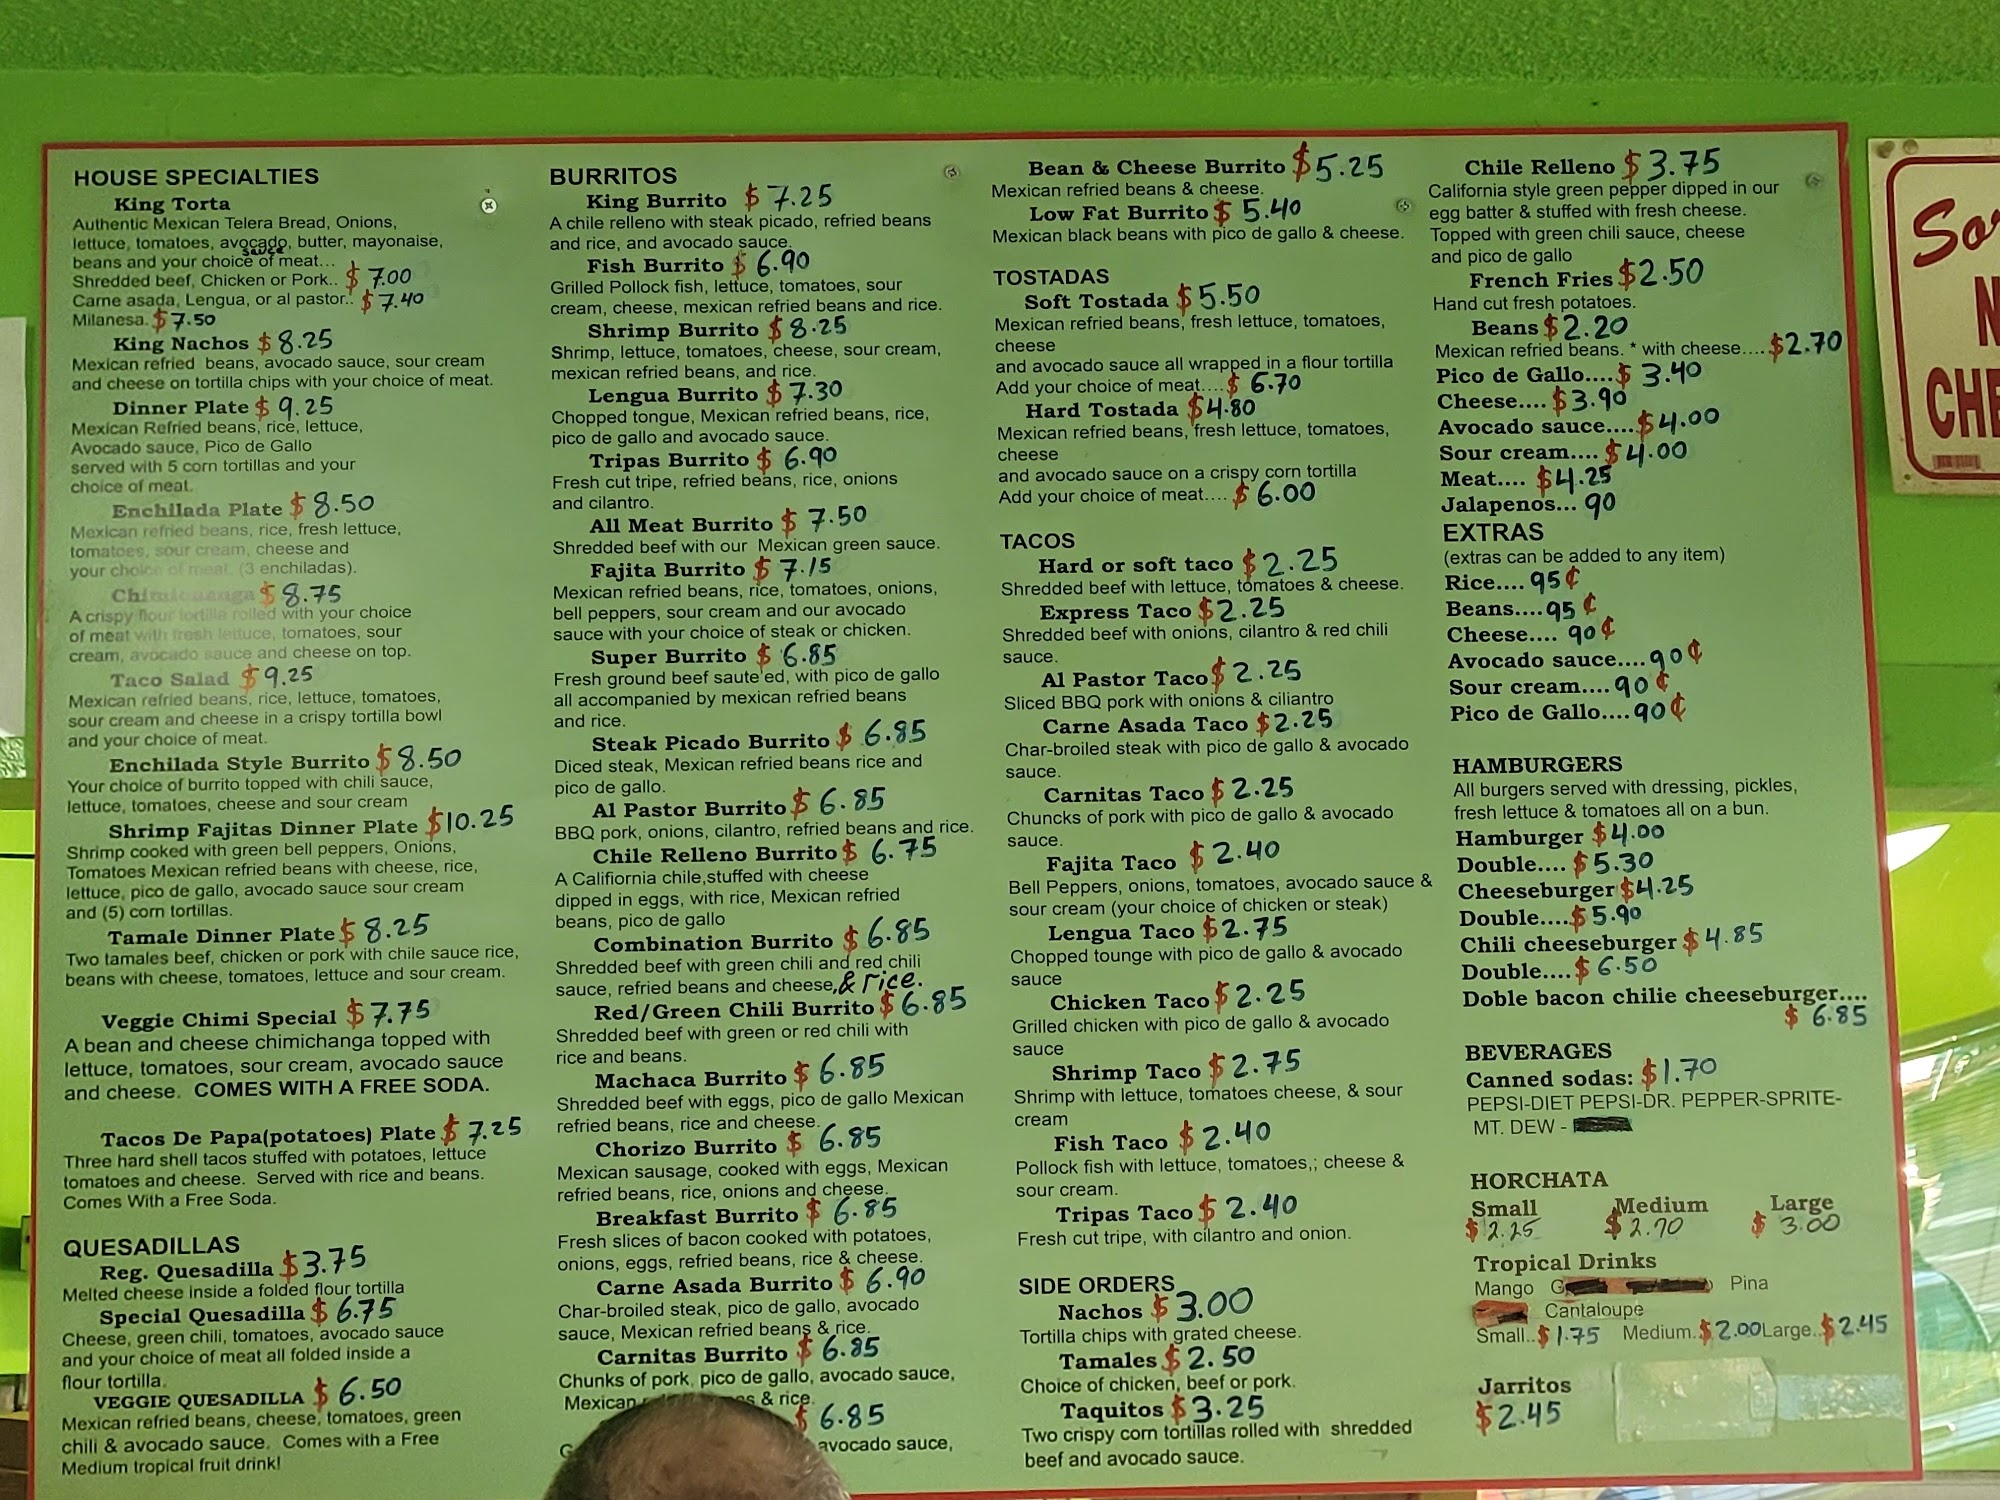 HOUSE SPECIALTIES
King Torta
Authentic Mexican Telera Bread, Onions,
lettuce, tomatoes, avocado, butter, mayonaise,
sauce
beans and your choice of meat...
Shredded beef, Chicken or Pork.. $7.00
Carne asada, Lengua, or al pastor.. $7.40
Milanesa. $7.50
King Nachos $8.25
Mexican refried beans, avocado sauce, sour cream
and cheese on tortilla chips with your choice of meat.
Dinner Plate $9.25
Mexican Refried beans, rice, lettuce,
Avocado sauce, Pico de Gallo
served with 5 corn tortillas and your
choice of meat.
Enchilada Plate $8.50
Mexican refried beans, rice, fresh lettuce,
tomatoes, sour cream, cheese and
your choice of meat. (3 enchiladas).
Chimichanga $8.75
A crispy flour tortilla rolled with your choice
of meat with fresh lettuce, tomatoes, sour
cream, avocado sauce and cheese on top.
Taco Salad $9.25
Mexican refried beans, rice, lettuce, tomatoes,
sour cream and cheese in a crispy tortilla bowl
and your choice of meat.
Enchilada Style Burrito $8.50
Your choice of burrito topped with chili sauce,
lettuce, tomatoes, cheese and sour cream
Shrimp Fajitas Dinner Plate $10.25
Shrimp cooked with green bell peppers, Onions,
Tomatoes Mexican refried beans with cheese, rice,
lettuce, pico de gallo, avocado sauce sour cream
and (5) corn tortillas.
Tamale Dinner Plate $8.25
Two tamales beef, chicken or pork with chile sauce rice,
beans with cheese, tomatoes, lettuce and sour cream.
Veggie Chimi Special $7.75
A bean and cheese chimichanga topped with
lettuce, tomatoes, sour cream, avocado sauce
and cheese. COMES WITH A FREE SODA.
Tacos De Papa(potatoes) Plate $7.25
Three hard shell tacos stuffed with potatoes, lettuce
tomatoes and cheese. Served with rice and beans.
Comes With a Free Soda.
QUESADILLAS
Reg. Quesadilla $3.75
Melted cheese inside a folded flour tortilla
Special Quesadilla $6.75
Cheese, green chili, tomatoes, avocado sauce
and your choice of meat all folded inside a
flour tortilla.
VEGGIE QUESADILLA $6.50
Mexican refried beans, cheese, tomatoes, green
chili & avocado sauce. Comes with a Free
Medium tropical fruit drink!
BURRITOS
King Burrito $7.25
A chile relleno with steak picado, refried beans
and rice, and avocado sauce.
Fish Burrito $6.90
Grilled Pollock fish, lettuce, tomatoes, sour
cream, cheese, mexican refried beans and rice.
Shrimp Burrito $8.25
Shrimp, lettuce, tomatoes, cheese, sour cream,
mexican refried beans, and rice.
Lengua Burrito $7.30
Chopped tongue, Mexican refried beans, rice,
pico de gallo and avocado sauce.
Tripas Burrito $6.90
Fresh cut tripe, refried beans, rice, onions
and cilantro.
All Meat Burrito $7.50
Shredded beef with our Mexican green sauce.
Fajita Burrito $7.15
Mexican refried beans, rice, tomatoes, onions,
bell peppers, sour cream and our avocado
sauce with your choice of steak or chicken.
Super Burrito $6.85
Fresh ground beef saute'ed, with pico de gallo
all accompanied by mexican refried beans
and rice.
Steak Picado Burrito $6.85
Diced steak, Mexican refried beans rice and
pico de gallo.
Al Pastor Burrito $6.85
BBQ pork, onions, cilantro, refried beans and rice.
Chile Relleno Burrito $6.75
A Califiornia chile,stuffed with cheese
dipped in eggs, with rice, Mexican refried
beans, pico de gallo
Combination Burrito $6.85
Shredded beef with green chili and red chili
sauce, refried beans and cheese,& rice.
Red/Green Chili Burrito $6.85
Shredded beef with green or red chili with
rice and beans.
Machaca Burrito $6.85
Shredded beef with eggs, pico de gallo Mexican
refried beans, rice and cheese.
Chorizo Burrito $6.85
Mexican sausage, cooked with eggs, Mexican
refried beans, rice, onions and cheese.
Breakfast Burrito $6.85
Fresh slices of bacon cooked with potatoes,
onions, eggs, refried beans, rice & cheese.
Carne Asada Burrito $6.90
Char-broiled steak, pico de gallo, avocado
sauce, Mexican refried beans & rice.
Carnitas Burrito $6.85
Chunks of pork, pico de gallo, avocado sauce,
Mexican & rice.
$6.85
avocado sauce,
Bean & Cheese Burrito $5.25
Mexican refried beans & cheese.
Low Fat Burrito $5.40
Mexican black beans with pico de gallo & cheese.
TOSTADAS
Soft Tostada $5.50
Mexican refried beans, fresh lettuce, tomatoes,
cheese
and avocado sauce all wrapped in a flour tortilla
Add your choice of meat.... $6.70
Hard Tostada $4.80
Mexican refried beans, fresh lettuce, tomatoes,
cheese
and avocado sauce on a crispy corn tortilla
Add your choice of meat.... $6.00
TACOS
Hard or soft taco $2.25
Shredded beef with lettuce, tomatoes & cheese.
Express Taco $2.25
Shredded beef with onions, cilantro & red chili
sauce.
Al Pastor Taco $2.25
Sliced BBQ pork with onions & ciliantro
Carne Asada Taco $2.25
Char-broiled steak with pico de gallo & avocado
sauce.
Carnitas Taco $2.25
Chuncks of pork with pico de gallo & avocado
sauce.
Fajita Taco $2.40
Bell Peppers, onions, tomatoes, avocado sauce &
sour cream (your choice of chicken or steak)
Lengua Taco $2.75
Chopped tounge with pico de gallo & avocado
sauce
Chicken Taco $2.25
Grilled chicken with pico de gallo & avocado
sauce
Shrimp Taco $2.75
Shrimp with lettuce, tomatoes cheese, & sour
cream
Fish Taco $2.40
Pollock fish with lettuce, tomatoes,; cheese &
sour cream.
Tripas Taco $2.40
Fresh cut tripe, with cilantro and onion.
SIDE ORDERS
Nachos $3.00
Tortilla chips with grated cheese.
Tamales $2.50
Choice of chicken, beef or pork.
Taquitos $3.25
Two crispy corn tortillas rolled with shredded
beef and avocado sauce.
Chile Relleno $3.75
California style green pepper dipped in our
egg batter & stuffed with fresh cheese.
Topped with green chili sauce, cheese
and pico de gallo
French Fries $2.50
Hand cut fresh potatoes.
Beans $2.20
Mexican refried beans. * with cheese.... $2.70
Pico de Gallo.... $3.40
Cheese.... $3.90
Avocado sauce.... $4.00
Sour cream.... $4.00
Meat.... $4.25
Jalapenos... 90
EXTRAS
(extras can be added to any item)
Rice.... 95¢
Beans.... 95¢
Cheese.... 90¢
Avocado sauce.... 90¢
Sour cream.... 90¢
Pico de Gallo.... 90¢
HAMBURGERS
All burgers served with dressing, pickles,
fresh lettuce & tomatoes all on a bun.
Hamburger $4.00
Double.... $5.30
Cheeseburger $4.25
Double.... $5.90
Chili cheeseburger $4.85
Double.... $6.50
Doble bacon chilie cheeseburger....
$6.85
BEVERAGES
Canned sodas: $1.70
PEPSI-DIET PEPSI-DR. PEPPER-SPRITE-
MT. DEW -
HORCHATA
Small Medium Large
$2.25 $2.70 $3.00
Tropical Drinks
Mango Pina
Cantaloupe
Small.. $1.75 Medium. $2.00 Large.. $2.45
Jarritos
$2.45